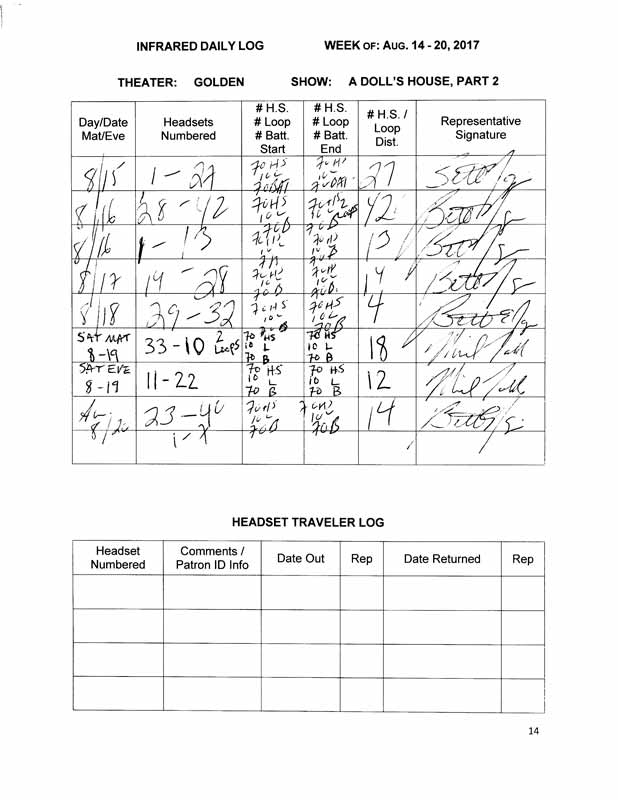 INFRARED DAILY LOG WEEK OF: AUG. 14 - 20, 2017
THEATER: GOLDEN SHOW: A DOLL'S HOUSE, PART 2
Day/Date Mat/Eve Headsets Numbered # H.S. # Loop # Batt. Start # H.S. # Loop # Batt. End # H.S. / Loop Dist. Representative Signature
8/15 1 - 27 70 HS 10 L 70 BAT 70 HS 10 L 70 BAT 27
8/16 28 - 42 70 HS 10 L 70 B 70 HS 70 B 42
8/16 1 - 13 70 HS 70 HS 10 L 70 B 13
8/17 14 - 28 70 HS 10 L 70 B 70 HS 10 L 70 B 14
8/18 29 - 32 70 HS 10 L 70 B 70 HS 10 L 70 B 4
SAT MAT 8-19 33 - 10 2 Loops 70 HS 10 L 70 B 70 HS 10 L 70 B 18
SAT EVE 8-19 11 - 22 70 HS 10 L 70 B 70 HS 10 L 70 B 12
8/20 23 - 40 70 HS 10 L 70 B 70 HS 10 L 70 B 14
HEADSET TRAVELER LOG
Headset Numbered Comments / Patron ID Info Date Out Rep Date Returned Rep
14